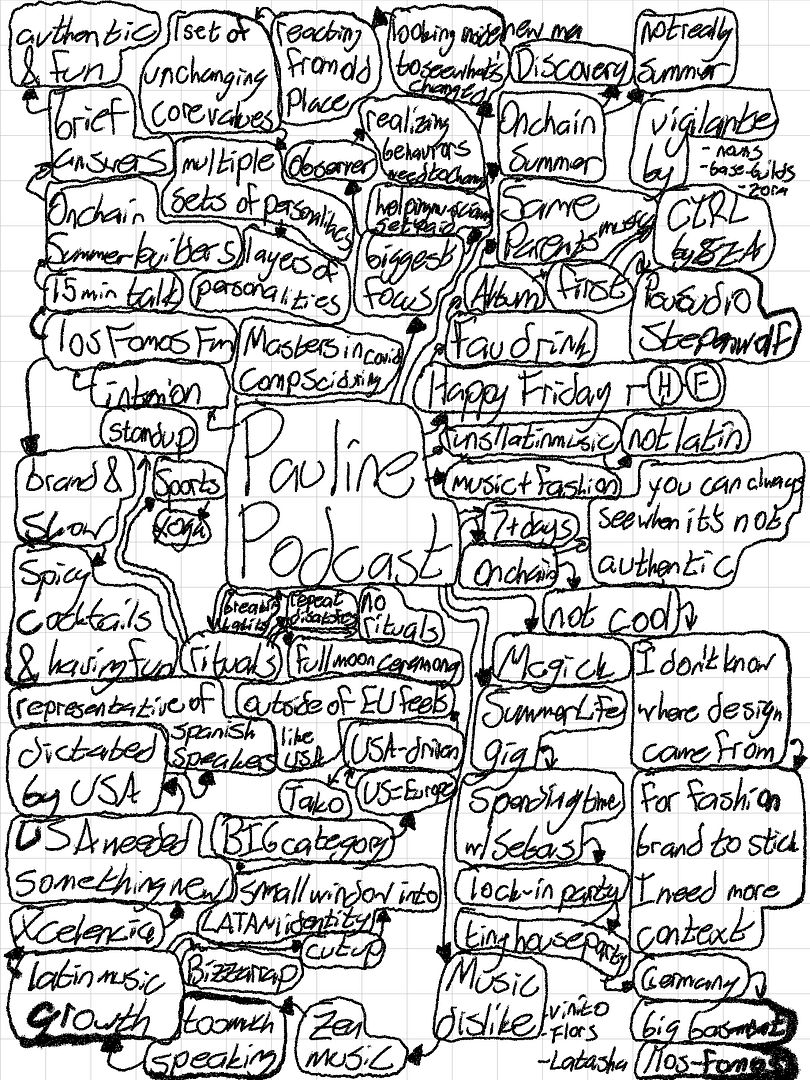 authentic
& fun
1 set of
unchanging
core values
reacting
from old
place
looking inside
to see what's
changed
new me
Discovery
not really
summer
brief
answers
multiple
sets of personalities
observer
realizing
behaviors
need to change
Onchain
Summer
vigilante
by
- nouns
- base-builds
- zora
Onchain
Summer builders
layers of
personalities
helping musicians
get paid
biggest
focus
Same
Parents
music
CTRL
by SZA
15 min talk
Album
first
Pau audio
Steppenwolf
los Fomos Fm
Masters in
Comp Sci
covid
Pau drink
Happy Friday
H
F
standup
Pauline
Podcast
runs latin music
not latin
brand &
Show
Sports
yoga
music + fashion
you can always
see when it's not
authentic
7+ days
onchain
Spicy
Cocktails
& having fun
repeat
no
rituals
not cool
rituals
full moon ceremony
Magick
I don't know
where design
came from
representative of
outside of EU feels
like
USA
Summer Life
gig
dictated
by USA
spanish
speakers
USA-driven
Tako
US=Europe
Spending time
w/ Sebas
for fashion
brand to stick
I need more
context
USA needed
something new
BIG category
small window into
LATAM identity
lock-in party
Xcelencia
cutup
tiny house party
latin music
growth
Bizzarrap
Music
dislike
Germany
too much
speaking
Zen
music
- vinito
- Flors
- Latasha
big basement
/los-fomos